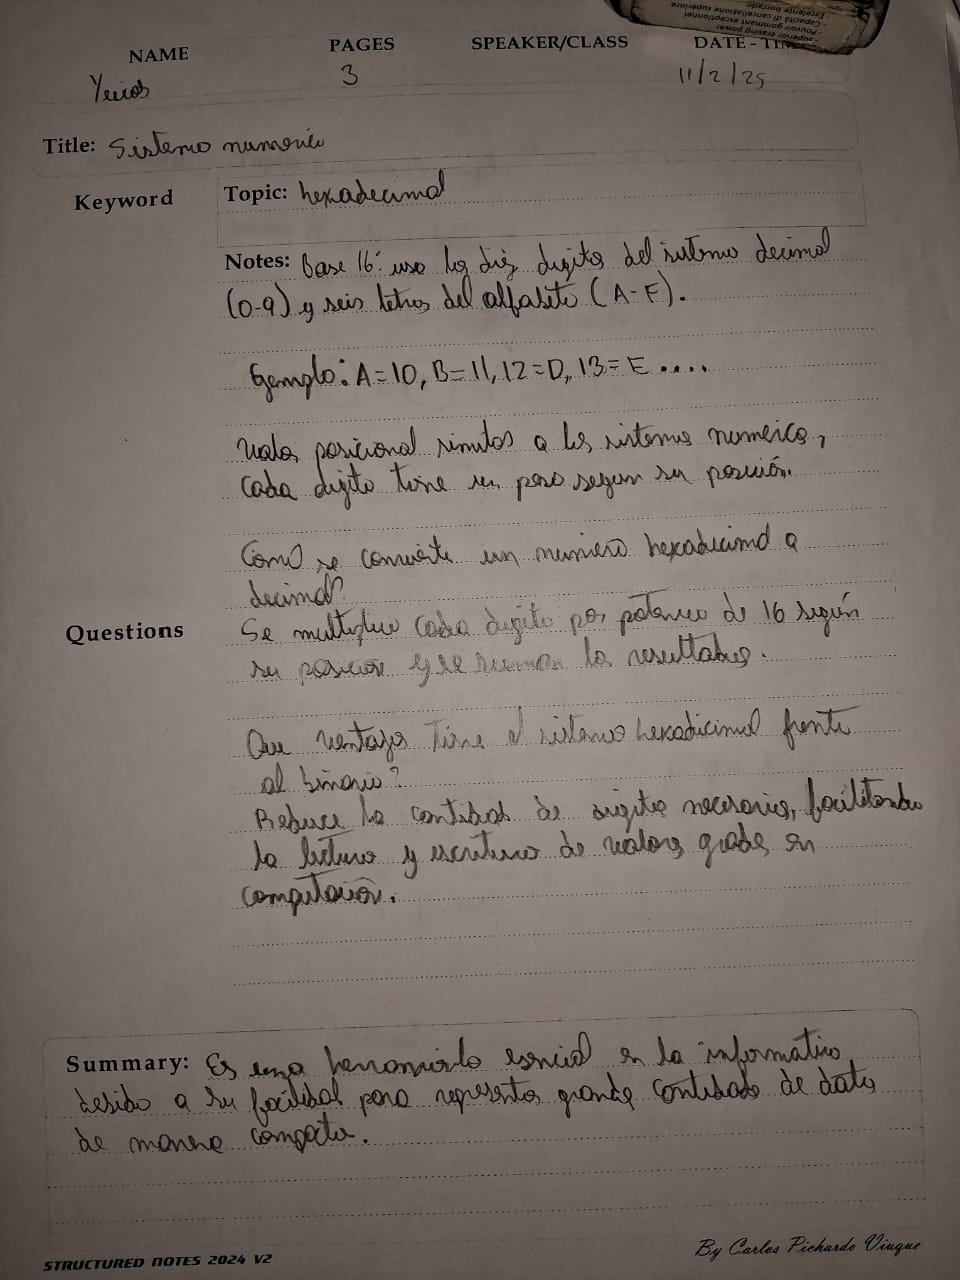 - superior erasing power
- Pouvoir gommant exceptionnel
- Capacità di cancellazione superiore
- Excelente borrado
NAME PAGES SPEAKER/CLASS DATE - TIME
3 11/2/25
Title: Sistema numerico
Keyword Topic: hexadecimal
Notes: Base 16: usa los diez digitos del sistema decimal
(0-9) y seis letras del alfabeto (A-F).
Ejemplo: A=10, B=11, 12=D, 13=E ....
Valor posicional similar a los sistemas numericos,
cada digito tiene un peso segun su posición.
Como se convierte un numero hexadecimal a
decimal?
Questions Se multiplica cada digito por potencia de 16 según
su posicion y se suman los resultados.
Que ventajas tiene el sistema hexadecimal frente
al binario?
Reduce la cantidad de digitos necesarios, facilitando
la lectura y escritura de valores grandes en
computación.
Summary: Es una herramienta esencial en la informatica
debido a su facilidad para representar grandes cantidades de datos
de manera compacta.
STRUCTURED NOTES 2024 V2 By Carlos Pichardo Viuque